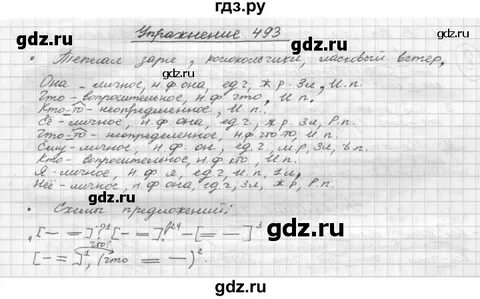 гдз.ру
gdz.ru
gdz.ru
Упражнение 493
• Теплая заря, колокольчики, ласковый ветер,
Она - личное, н.ф она, ед.ч, ж.р. 3л, И.п.
Что - вопросительное, н.ф что, И.п.
Кто-то - неопределенное, И.п.
Её - личное, н.ф она, ед.ч, ж.р, 3л, Р.п.
Что-то - неопределенное, н.ф что-то, И.п.
Ему - личное, н.ф. он, ед.ч, м.р, 3л,
Кто - вопросительное, н.ф кто, И.п.
Я - личное, н.ф я, ед.ч, И.п, 1л,
Неё - личное, н.ф она, ед.ч, 3л, ж.р, Р.п.
• Схемы предложений:
[- =]?¹ [- =]?² - [= -]³
что?
[- =]¹, (что = -)².
gdz.ru
gdz.ru
gdz.ru
gdz.ru
gdz.ru
gdz.ru